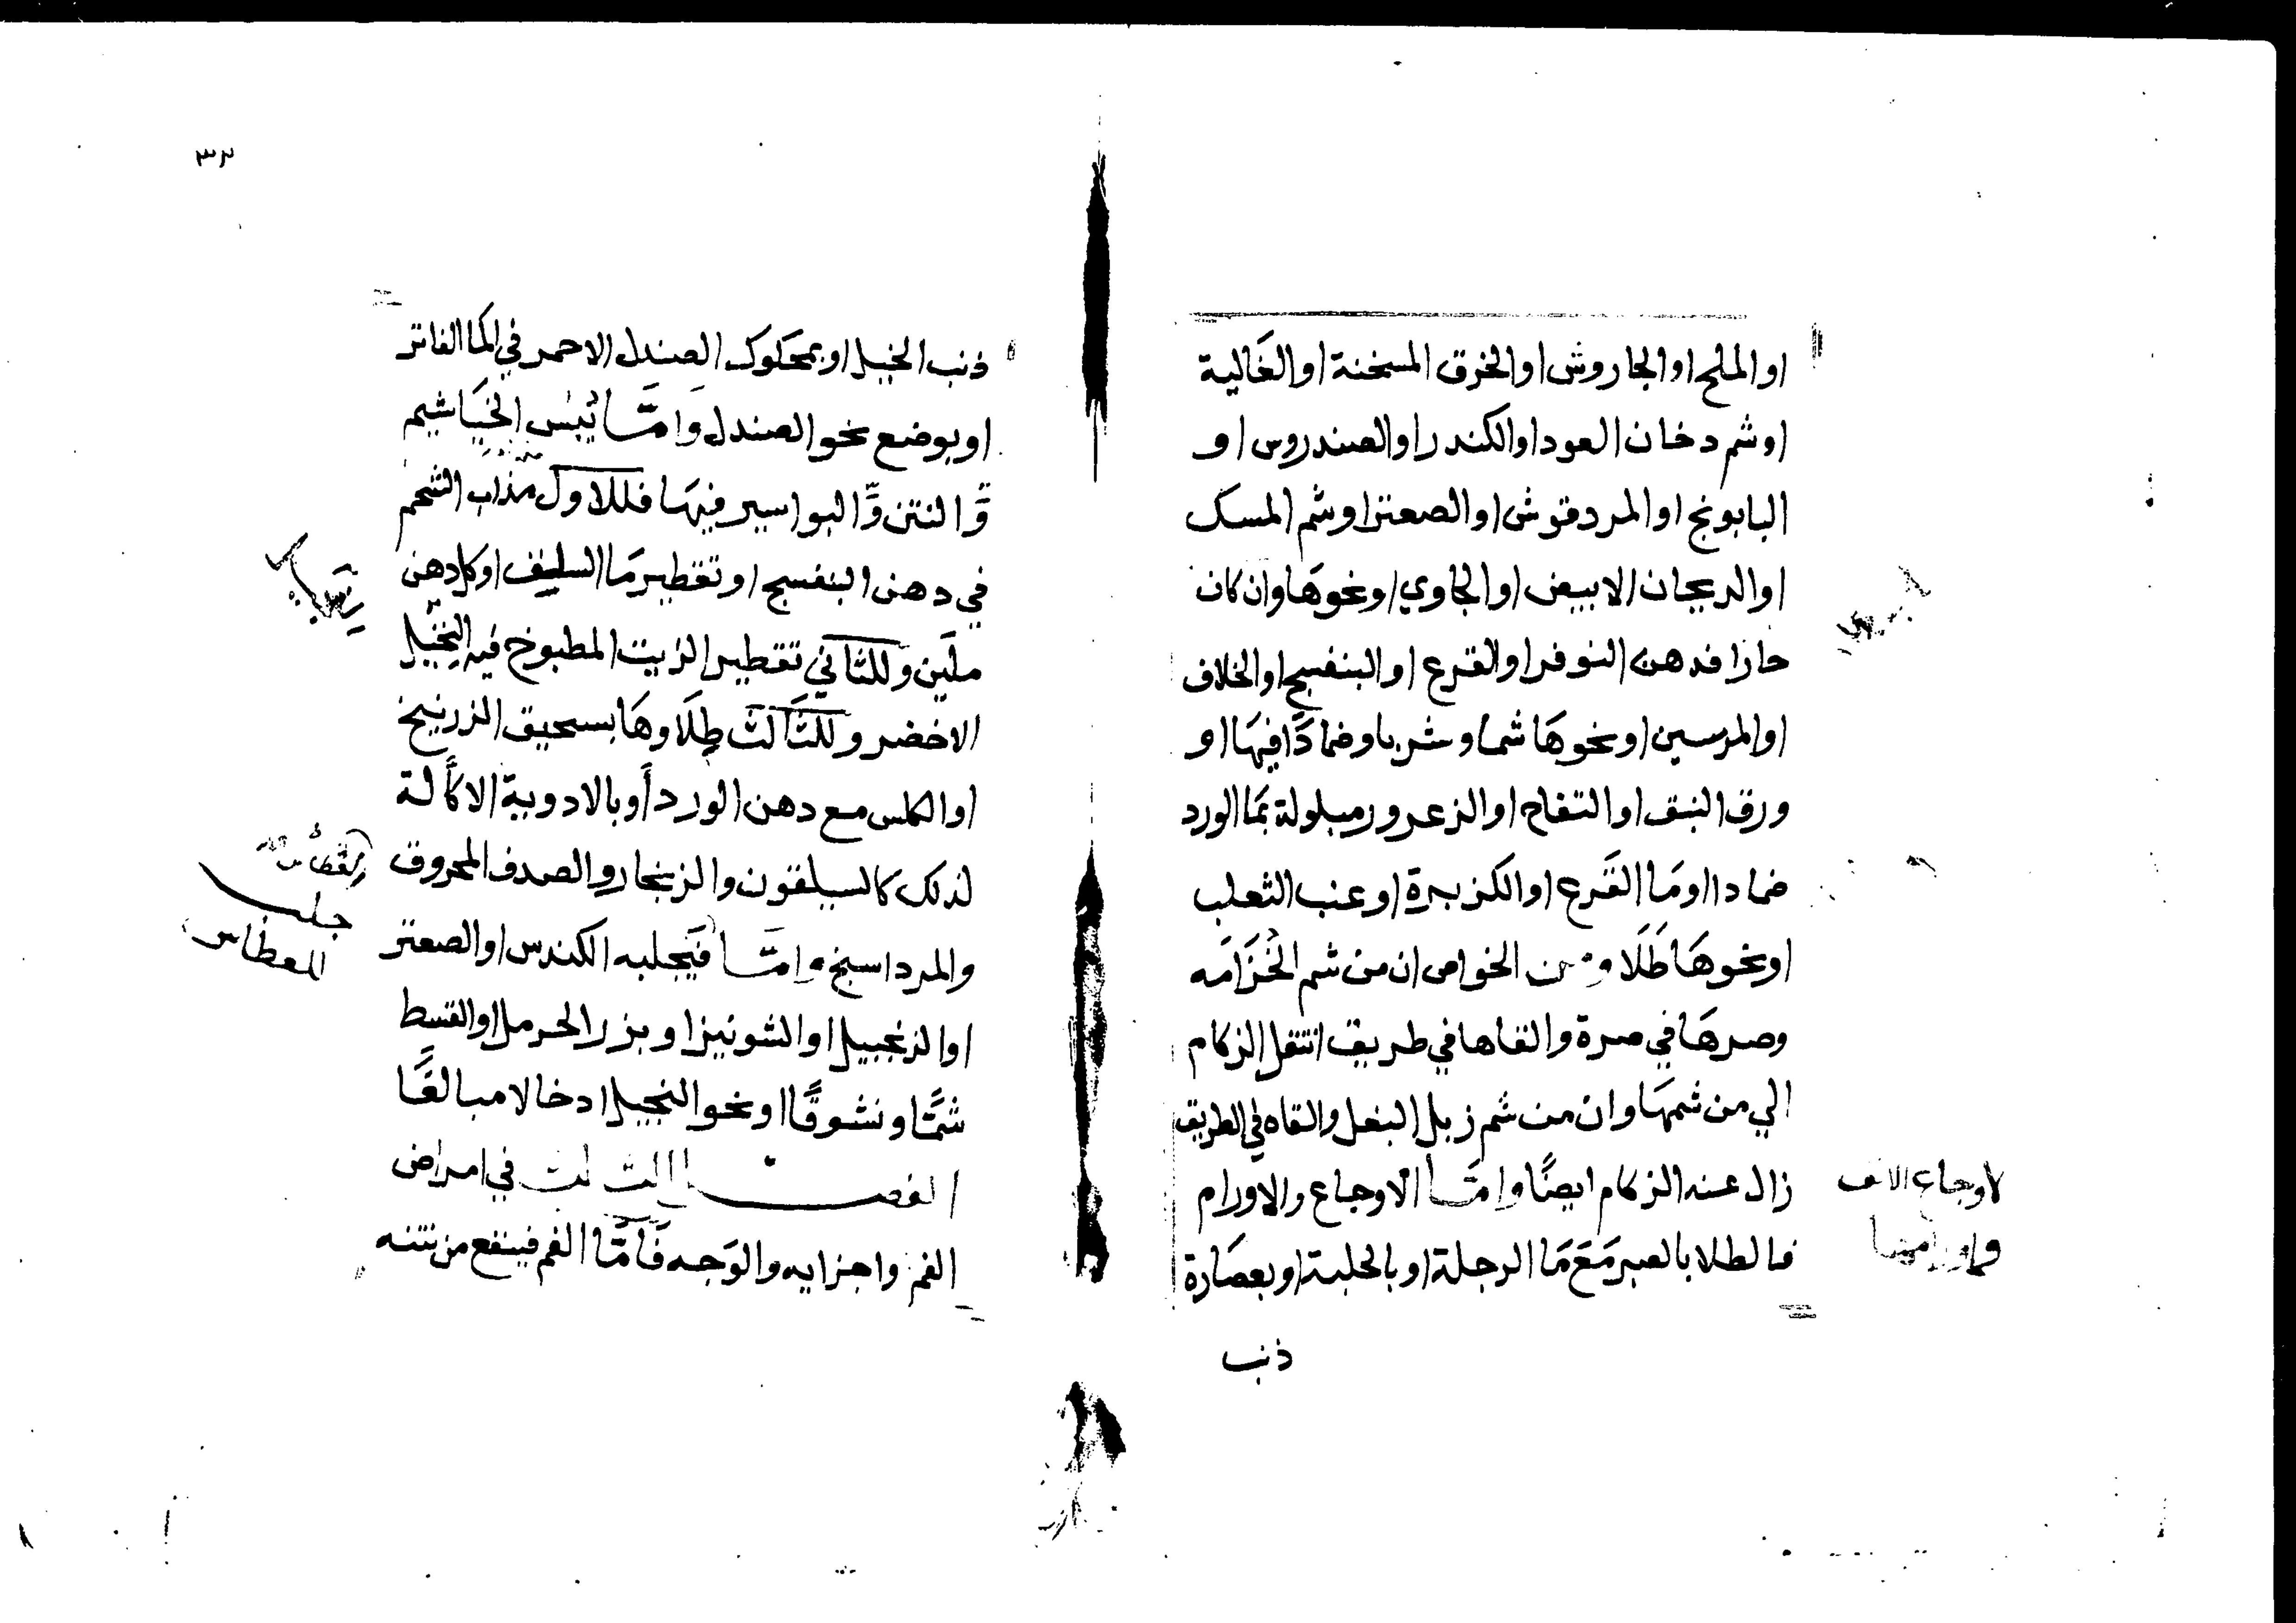 او الملح او الجاروش او الخرق المسخنة او الغالية
او شم دخان العود او الكندر او الصندروس او
البابونج او المردقوش او الصعتر او شم المسك
او الريحان الابيض او الجاوي او نحوها وان كان
حارا فدهن النوفر او القرع او البنفسج او الخلاف
او المرسين او نحوها شما وشربا وضمادا فيها او
ورق النبق او التفاح او الزعرور مبلولة بما الورد
ضمادا او ما القرع او الكزبرة او عنب الثعلب
او نحوها طلا ومن الخواص ان من شم الخزامه
وصرها في صرة والقاها في طريق انتقل الزكام
الي من شمها وان من شم زبل البغل والقاه في الطريق
زال عنه الزكام ايضًا وامّا الاوجاع والاورام
فالطلا بالصبر مع ما الرجلة او بالحلبة او بعصارة
لاوجاع الانف
ذنب
٣٢
ذنب الخيل او بمحكوك الصندل الاحمر في الما الفاتر
او بوضع نحو الصندل وامّا يبس الخياشيم
والنتن والبواسير فيها فللاول مذاب الشحم
في دهن البنفسج او تقطير ما السليق او كل دهن
ملين وللثاني تقطير الزيت المطبوخ فيه النجيل
الاخضر وللثالث طلاوها بسحيق الزرنيخ
او الكلس مع دهن الورد أو بالادوية الاكالة
لذلك كالسيلقون والزنجار والصدف المحروق
والمرداسنج وامّا فيجلبه الكندس او الصعتر
او الزنجبيل او الشونيز او بزر الحرمل او القسط
شمًّا ونشوقًا او نحو النجيل ادخالا مبالغًا
الفصل الثالث في امراض
الفم واجزايه والوجه فامّا الفم فينفع من نتنه
العطاس
جلب
العطاس